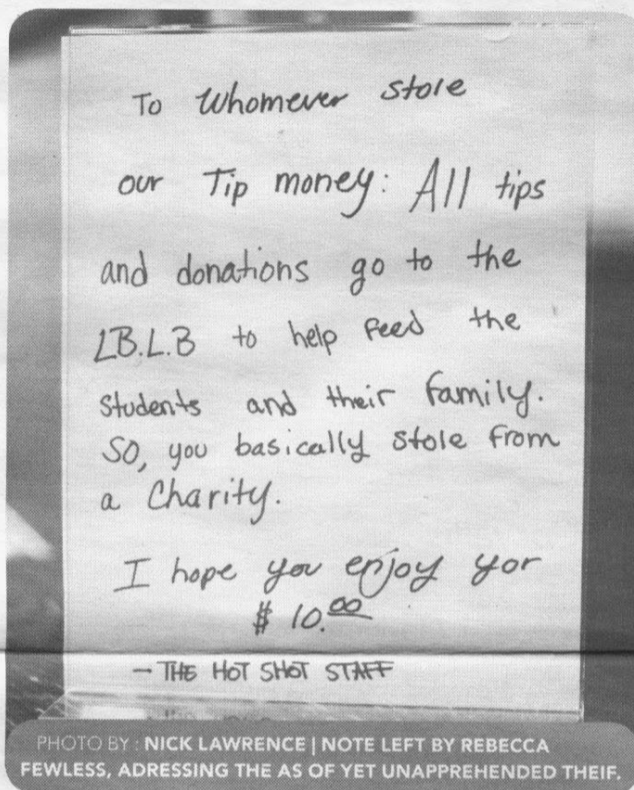 To Whomever stole
our Tip money: All tips
and donations go to the
LB.L.B to help feed the
Students and their family.
SO, you basically stole from
a Charity.
I hope you enjoy yor
$ 10.00
- THE HOT SHOT STAFF
PHOTO BY : NICK LAWRENCE | NOTE LEFT BY REBECCA
FEWLESS, ADRESSING THE AS OF YET UNAPPREHENDED THEIF.